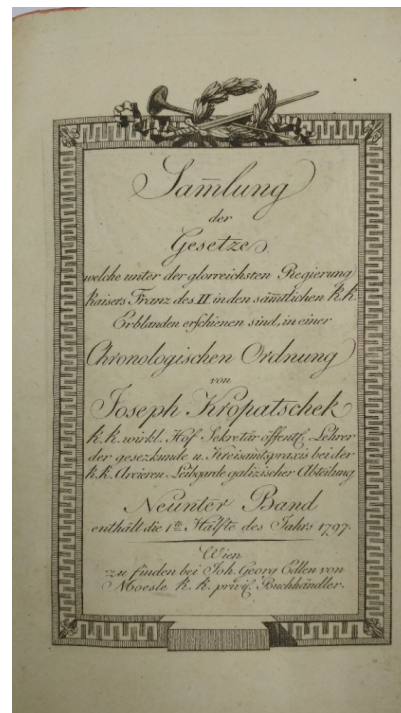 Sam̄lung
der
Gesetze
welche unter der glorreichsten Regierung
Kaisers Franz des II in den säm̄tlichen K.K.
Erblanden erschienen sind, in einer
Chronologischen Ordnung
von
Joseph Kropatschek
k.k. wirkl. Hof Sekretär öffentl. Lehrer
der gesezkunde u. Kreisamtspraxis bei der
k.k. Arcieren Leibgarde galizischer Abteilung
Neunter Band
enthält die 1te Hälfte des Jahrs 1797.
Wien
zu finden bei Joh. Georg Edlen von
Moesle k.k. privil. Buchhändler.